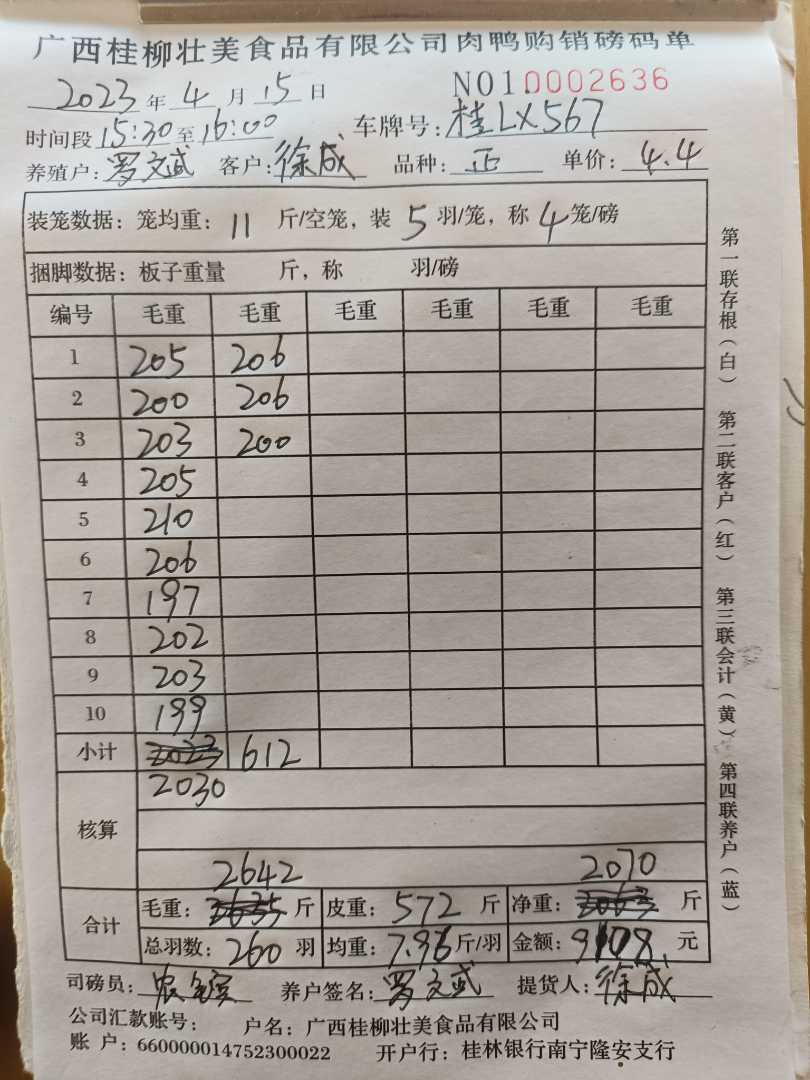 广西桂柳壮美食品有限公司肉鸭购销磅码单
2023年4月15日 NO1.0002636
时间段15:30至16:00 车牌号:桂LX567
养殖户:罗文武 客户:徐成 品种:正 单价:4.4
装笼数据:笼均重:11斤/空笼,装5羽/笼,称4笼/磅
捆脚数据:板子重量 斤,称 羽/磅
编号 毛重 毛重 毛重 毛重 毛重 毛重
1 205 206
2 200 206
3 203 200
4 205
5 210
6 206
7 197
8 202
9 203
10 199
小计 2023 612
2030
核算
2642 2070
合计 毛重:2635斤 皮重:572斤 净重:2063斤
总羽数:260羽 均重:7.96斤/羽 金额:9108元
司磅员: 养户签名:罗文武 提货人:徐成
公司汇款账号: 户名:广西桂柳壮美食品有限公司
账 户:660000014752300022 开户行:桂林银行南宁隆安支行
第一联存根(白) 第二联客户(红) 第三联会计(黄) 第四联养户(蓝)